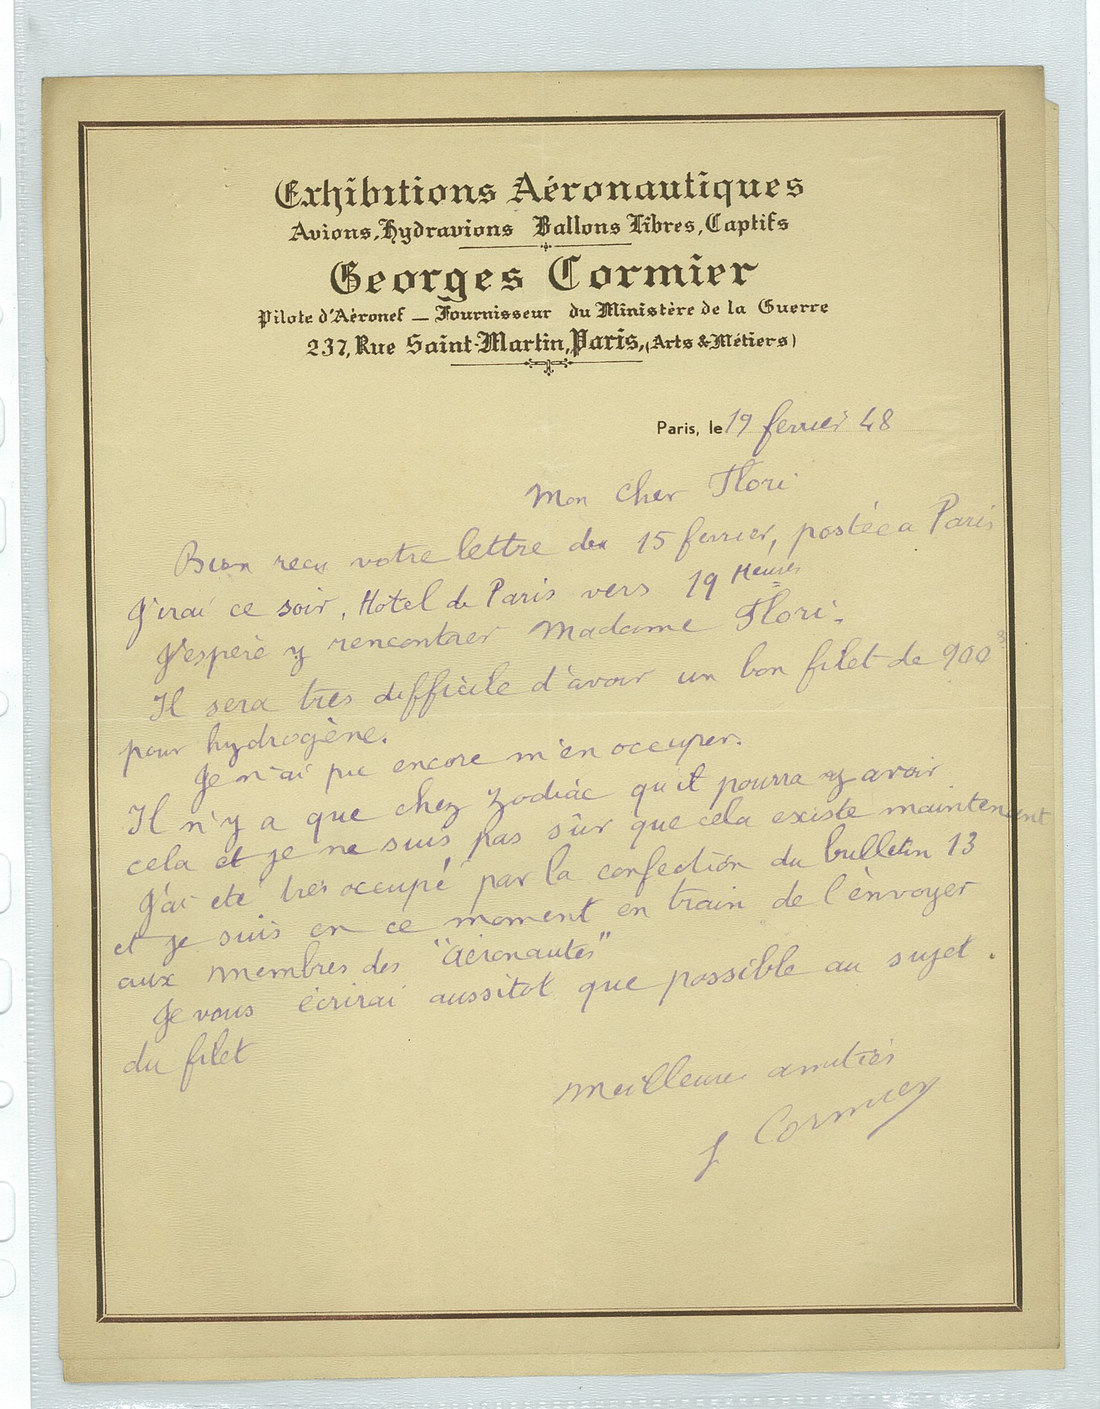 Exhibitions Aéronautiques
Avions, Hydravions Ballons Libres, Captifs
Georges Cormier
Pilote d'Aéronef — Fournisseur du Ministère de la Guerre
237, Rue Saint-Martin, Paris, (Arts & Métiers)
Paris, le 19 fevrier 48
Mon cher Flori
Bien recu votre lettre du 15 fevrier, postée a Paris
J'irai ce soir, Hotel de Paris vers 19 Heures
J'espère y rencontrer Madame Flori.
Il sera tres difficile d'avoir un bon filet de 900³
pour hydrogène.
Je n'ai pu encore m'en occuper.
Il n'y a que chez Zodiac qu'il pourra y avoir
cela et je ne suis pas sûr que cela existe maintenant
J'ai eté tres occupé par la confection du bulletin 13
et je suis en ce moment en train de l'envoyer
aux membres des "Aéronautes"
Je vous écrirai aussitot que possible au sujet
du filet
Meilleures amitiés
G Cormier